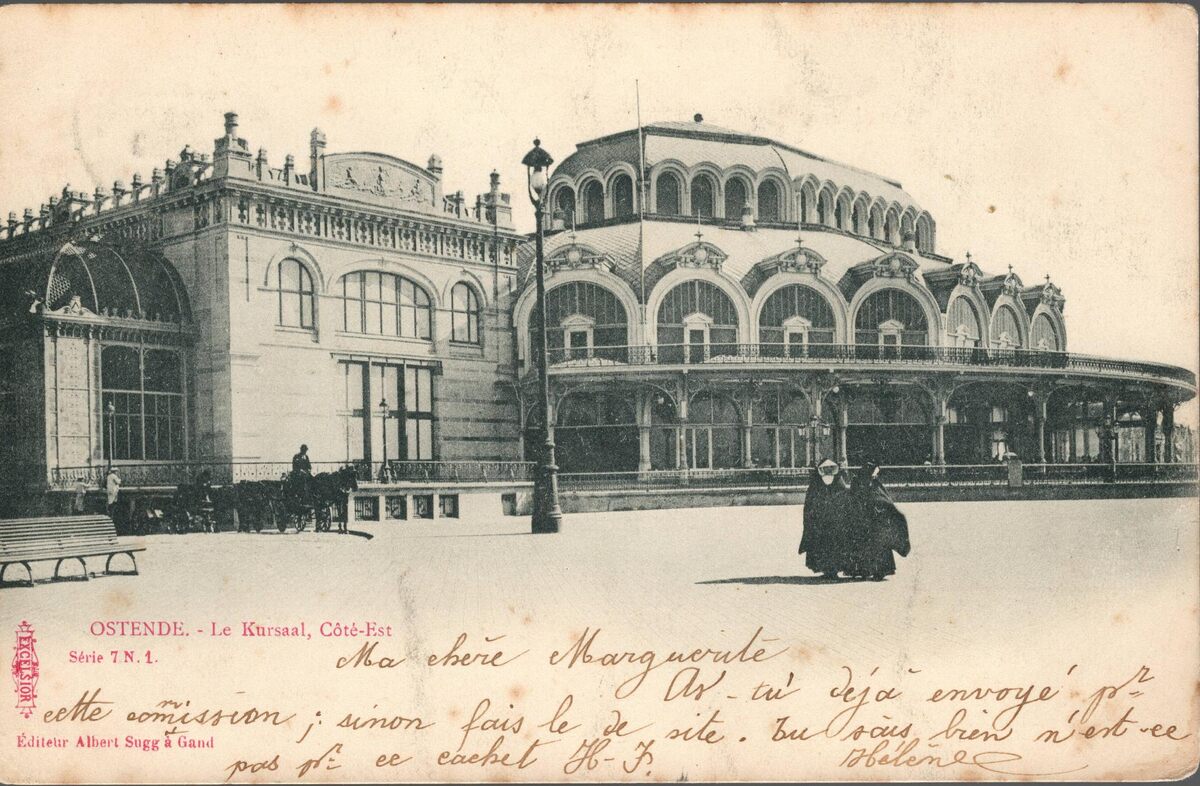 OSTENDE. - Le Kursaal, Côté-Est
Série 7 N. 1.
EXCELSIOR
Éditeur Albert Sugg à Gand
Ma chère Marguerite
As-tu déjà envoyé pr
cette commission ; sinon fais le de site. Tu sais bien n'est-ce
pas pr ce cachet H-F. Hélène